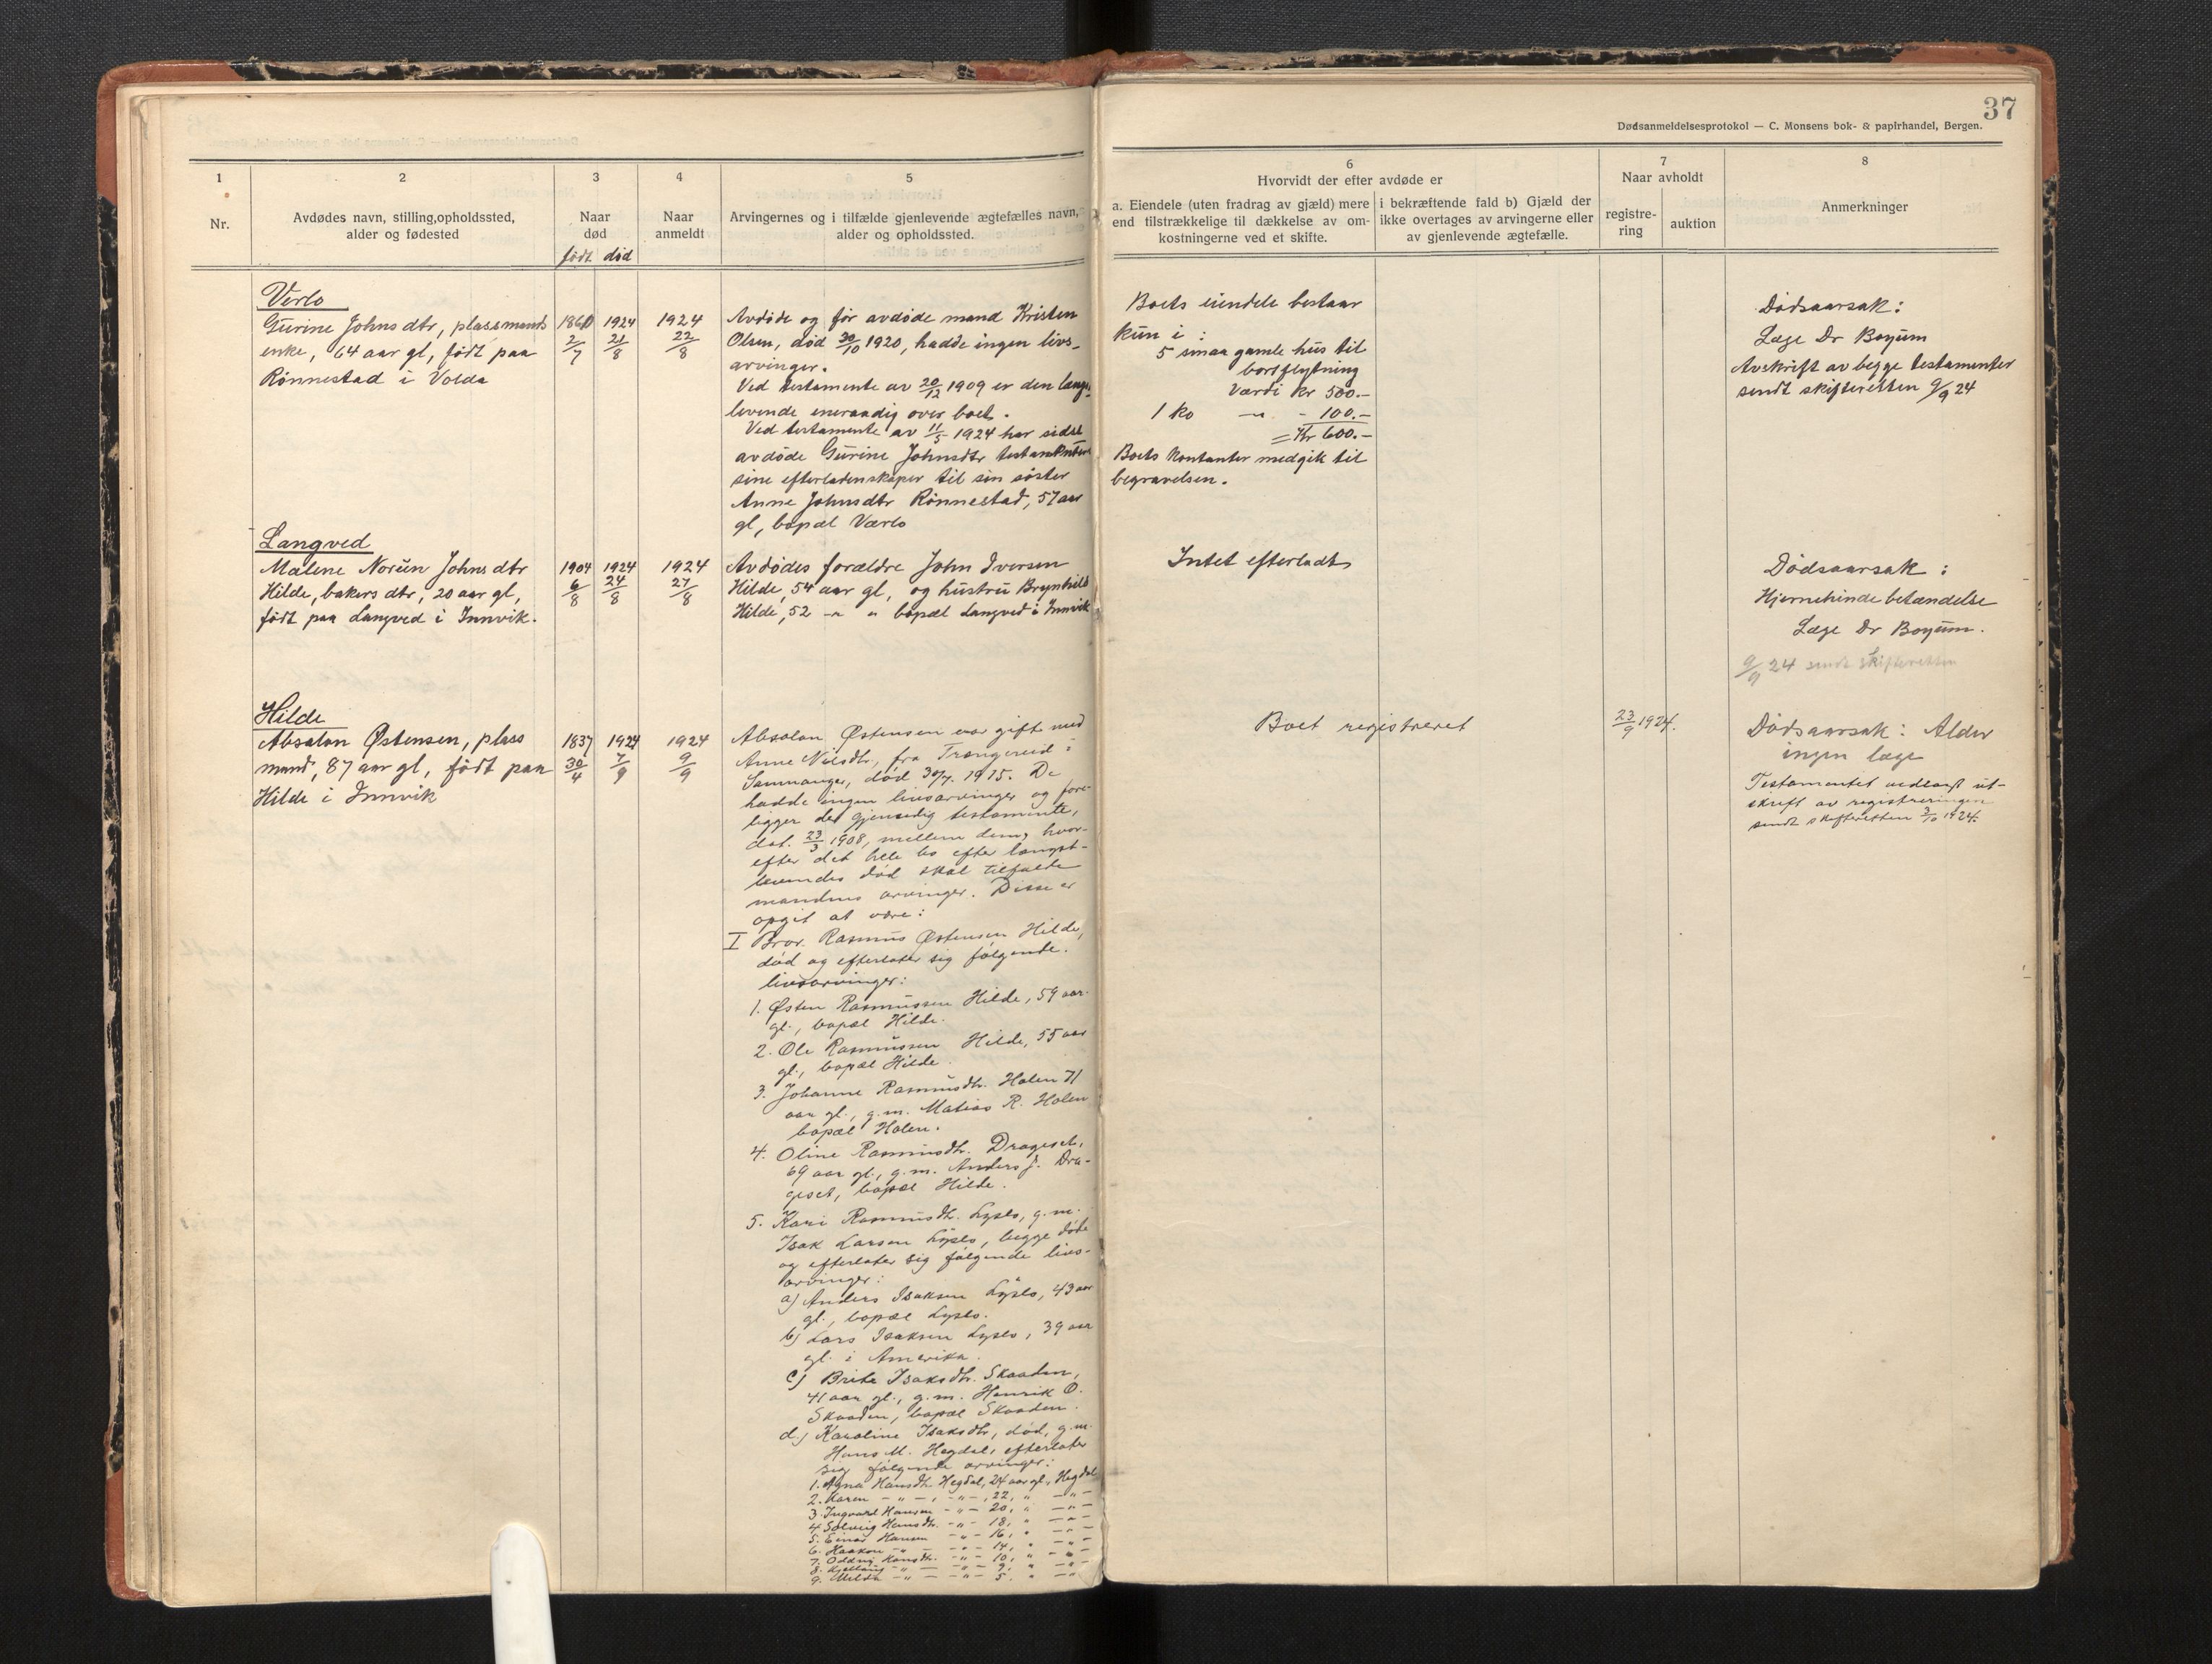 37
Dødsanmeldelsesprotokol — C. Monsens bok- & papirhandel, Bergen.
1
Nr.
2
Avdødes navn, stilling, opholdssted,
alder og fødested
3
Naar
død
født død
4
Naar
anmeldt
5
Arvingernes og i tilfælde gjenlevende ægtefælles navn,
alder og opholdssted.
6
Hvorvidt der efter avdøde er
a. Eiendele (uten fradrag av gjæld) mere
end tilstrækkelige til dækkelse av om-
kostningerne ved et skifte.
i bekræftende fald b) Gjæld der
ikke overtages av arvingerne eller
av gjenlevende ægtefælle.
7
Naar avholdt
registre-
ring
auktion
8
Anmerkninger
Verlo
Gurine Johnsdtr, plassmands
enke, 64 aar gl, født paa
Rönnestad i Volda
1860
2/7
1924
21/8
1924
22/8
Avdöde og før avdöde mand Kristen
Olsen, död 30/10 1920, hadde ingen livs-
arvinger.
Ved testamente av 20/12 1909 er den længst
levende eneraadig over boet.
Ved testamente av 11/5 1924 har sidst
avdöde Gurine Johnsdtr testamentert
sine efterladenskaper til sin söster
Anne Johnsdtr Rönnestad, 57 aar
gl, bopæl Værlo
Boets eiendele bestaar
kun i :
5 smaa gamle hus til
bortflytning
Værdi kr 500.-
1 ko -"- - 100.-
= Kr 600.-
Boets kontanter medgik til
begravelsen.
Dödsaarsak :
Læge Dr Boyum
Avskrift av begge testamenter
sendt skifteretten 9/9 24
Langved
Malene Norun Johnsdtr
Hilde, bakers dtr, 20 aar gl,
födt paa Langved i Innvik.
1904
6/8
1924
24/8
1924
27/8
Avdödes forældre John Iversen
Hilde, 54 aar gl, og hustru Brynhild
Hilde, 52 -" " bopæl Langved i Innvik
Intet efterladt
Dödsaarsak :
Hjernehinde betændelse
Læge Dr Boyum.
9/9 24 sendt skifteretten
Hilde
Absalon Østensen, plass
mand, 87 aar gl, födt paa
Hilde i Innvik
1837
30/4
1924
7/9
1924
9/9
Absalon Østensen var gift med
Anne Nilsdtr, fra Trængereid i
Samnanger, död 30/7. 1915. De
hadde ingen livsarvinger og fore-
ligger der gjensidig testamente,
dat. 23/3 1908, mellem dem, hvor-
efter det hele bo efter længst-
levendes död skal tilfalde
mandens arvinger. Disse er
opgit at være :
I Bror Rasmus Østensen Hilde,
död og efterlater sig følgende
livsarvinger:
1. Østen Rasmussen Hilde, 59 aar
gl., bopæl Hilde.
2. Ole Rasmussen Hilde, 55 aar
gl., bopæl Hilde
3. Johanne Rasmusdtr. Holen 71
aar gl., g.m. Matias R. Holen
bopæl Holen.
4. Oline Rasmusdtr. Drageset,
69 aar gl., g.m. Anders J. Dra-
geset, bopæl Hilde.
5. Kari Rasmusdtr. Lyslo, g.m.
Isak Larsen Lyslo, begge döde
og efterlater sig følgende livs-
arvinger:
a) Anders Isaksen Lyslo, 43 aar
gl., bopæl Lyslo.
b) Lars Isaksen Lyslo, 39 aar
gl. i Amerika.
c) Brite Isaksdtr. Skaaden,
41 aar gl., g.m. Henrik O.
Skaaden, bopæl Skaaden.
d.) Karoline Isaksdtr, död, g.m.
Hans M. Hegdal, efterlater
sig følgende arvinger:
1. Agna Hansdtr. Hegdal, 24 aar gl., Hegdal
2. Karen -"- , -"-, 22, " -"-
3. Ingvard Hansen -"- 20, " -"-
4. Solveig Hansdtr. -"- 18, " -"-
5. Einar Hansen -"- 16, " -"-
6. Haakon -"- -"- 14, " -"-
7. Oddny Hansdtr. -"- 10, " -"-
8. -"- -"- 9, " -"-
9. Milda -"- -"- 5. " -"-
Boet registreret
23/9 1924.
Dödsaarsak : Alder
ingen læge
Testamentet vedlagt ut-
skrift av registreringen
sendt skifteretten 3/10 1924.